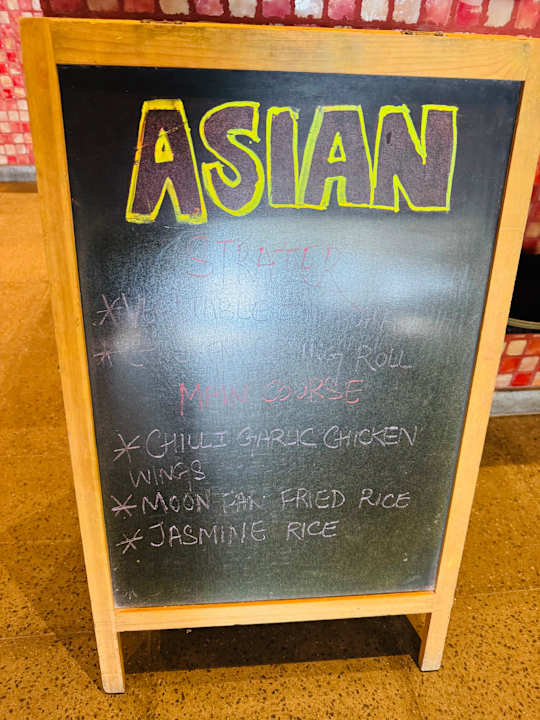 ASIAN
STRATER
* VEGETABLE
* ROLL
MAIN COURSE
* CHILLI GARLIC CHICKEN
WINGS
* MOON FAN FRIED RICE
* JASMINE RICE